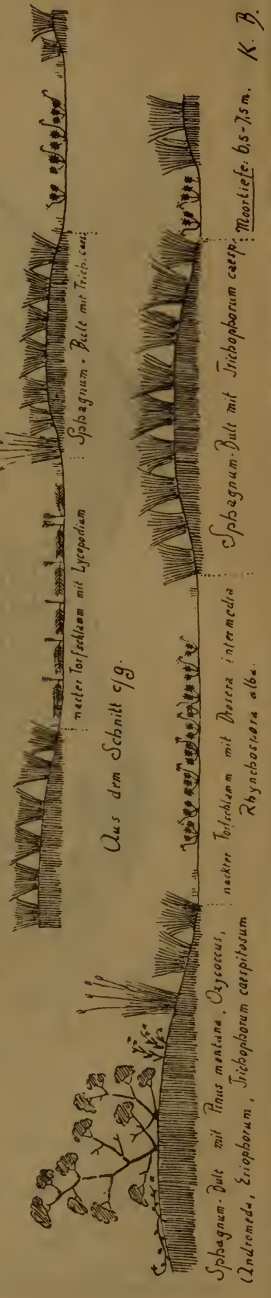 nackter Torfschlamm mit Lycopodium
Sphagnum-Bult mit Trich. caesp.
Aus dem Schnitt c/g.
Sphagnum-Bult mit Pinus montana, Oxycoccus,
Andromeda, Eriophorum, Trichophorum caespitosum
nackter Torfschlamm mit Drosera intermedia
Rhynchospora alba.
Sphagnum-Bult mit Trichophorum caesp.
Moortiefe: 6,5-7,5 m.
K. B.